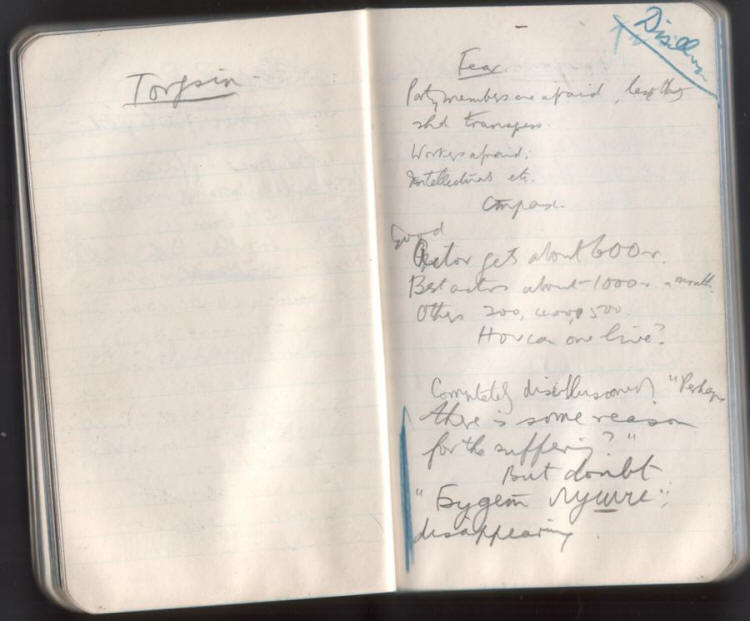 Torgsin
Disillusion
Fear
Party members are afraid, lest they
shd transgress.
Workers afraid.
Intellectuals etc.
Compare.
Good
Actor gets about 600 r.
Best actors about 1000 r a month.
Others 200, 400, 500.
How can one live?
Completely disillusioned, "Perhaps
there is some reason
for the suffering?"
But doubt
"Будет лучше";
disappearing.